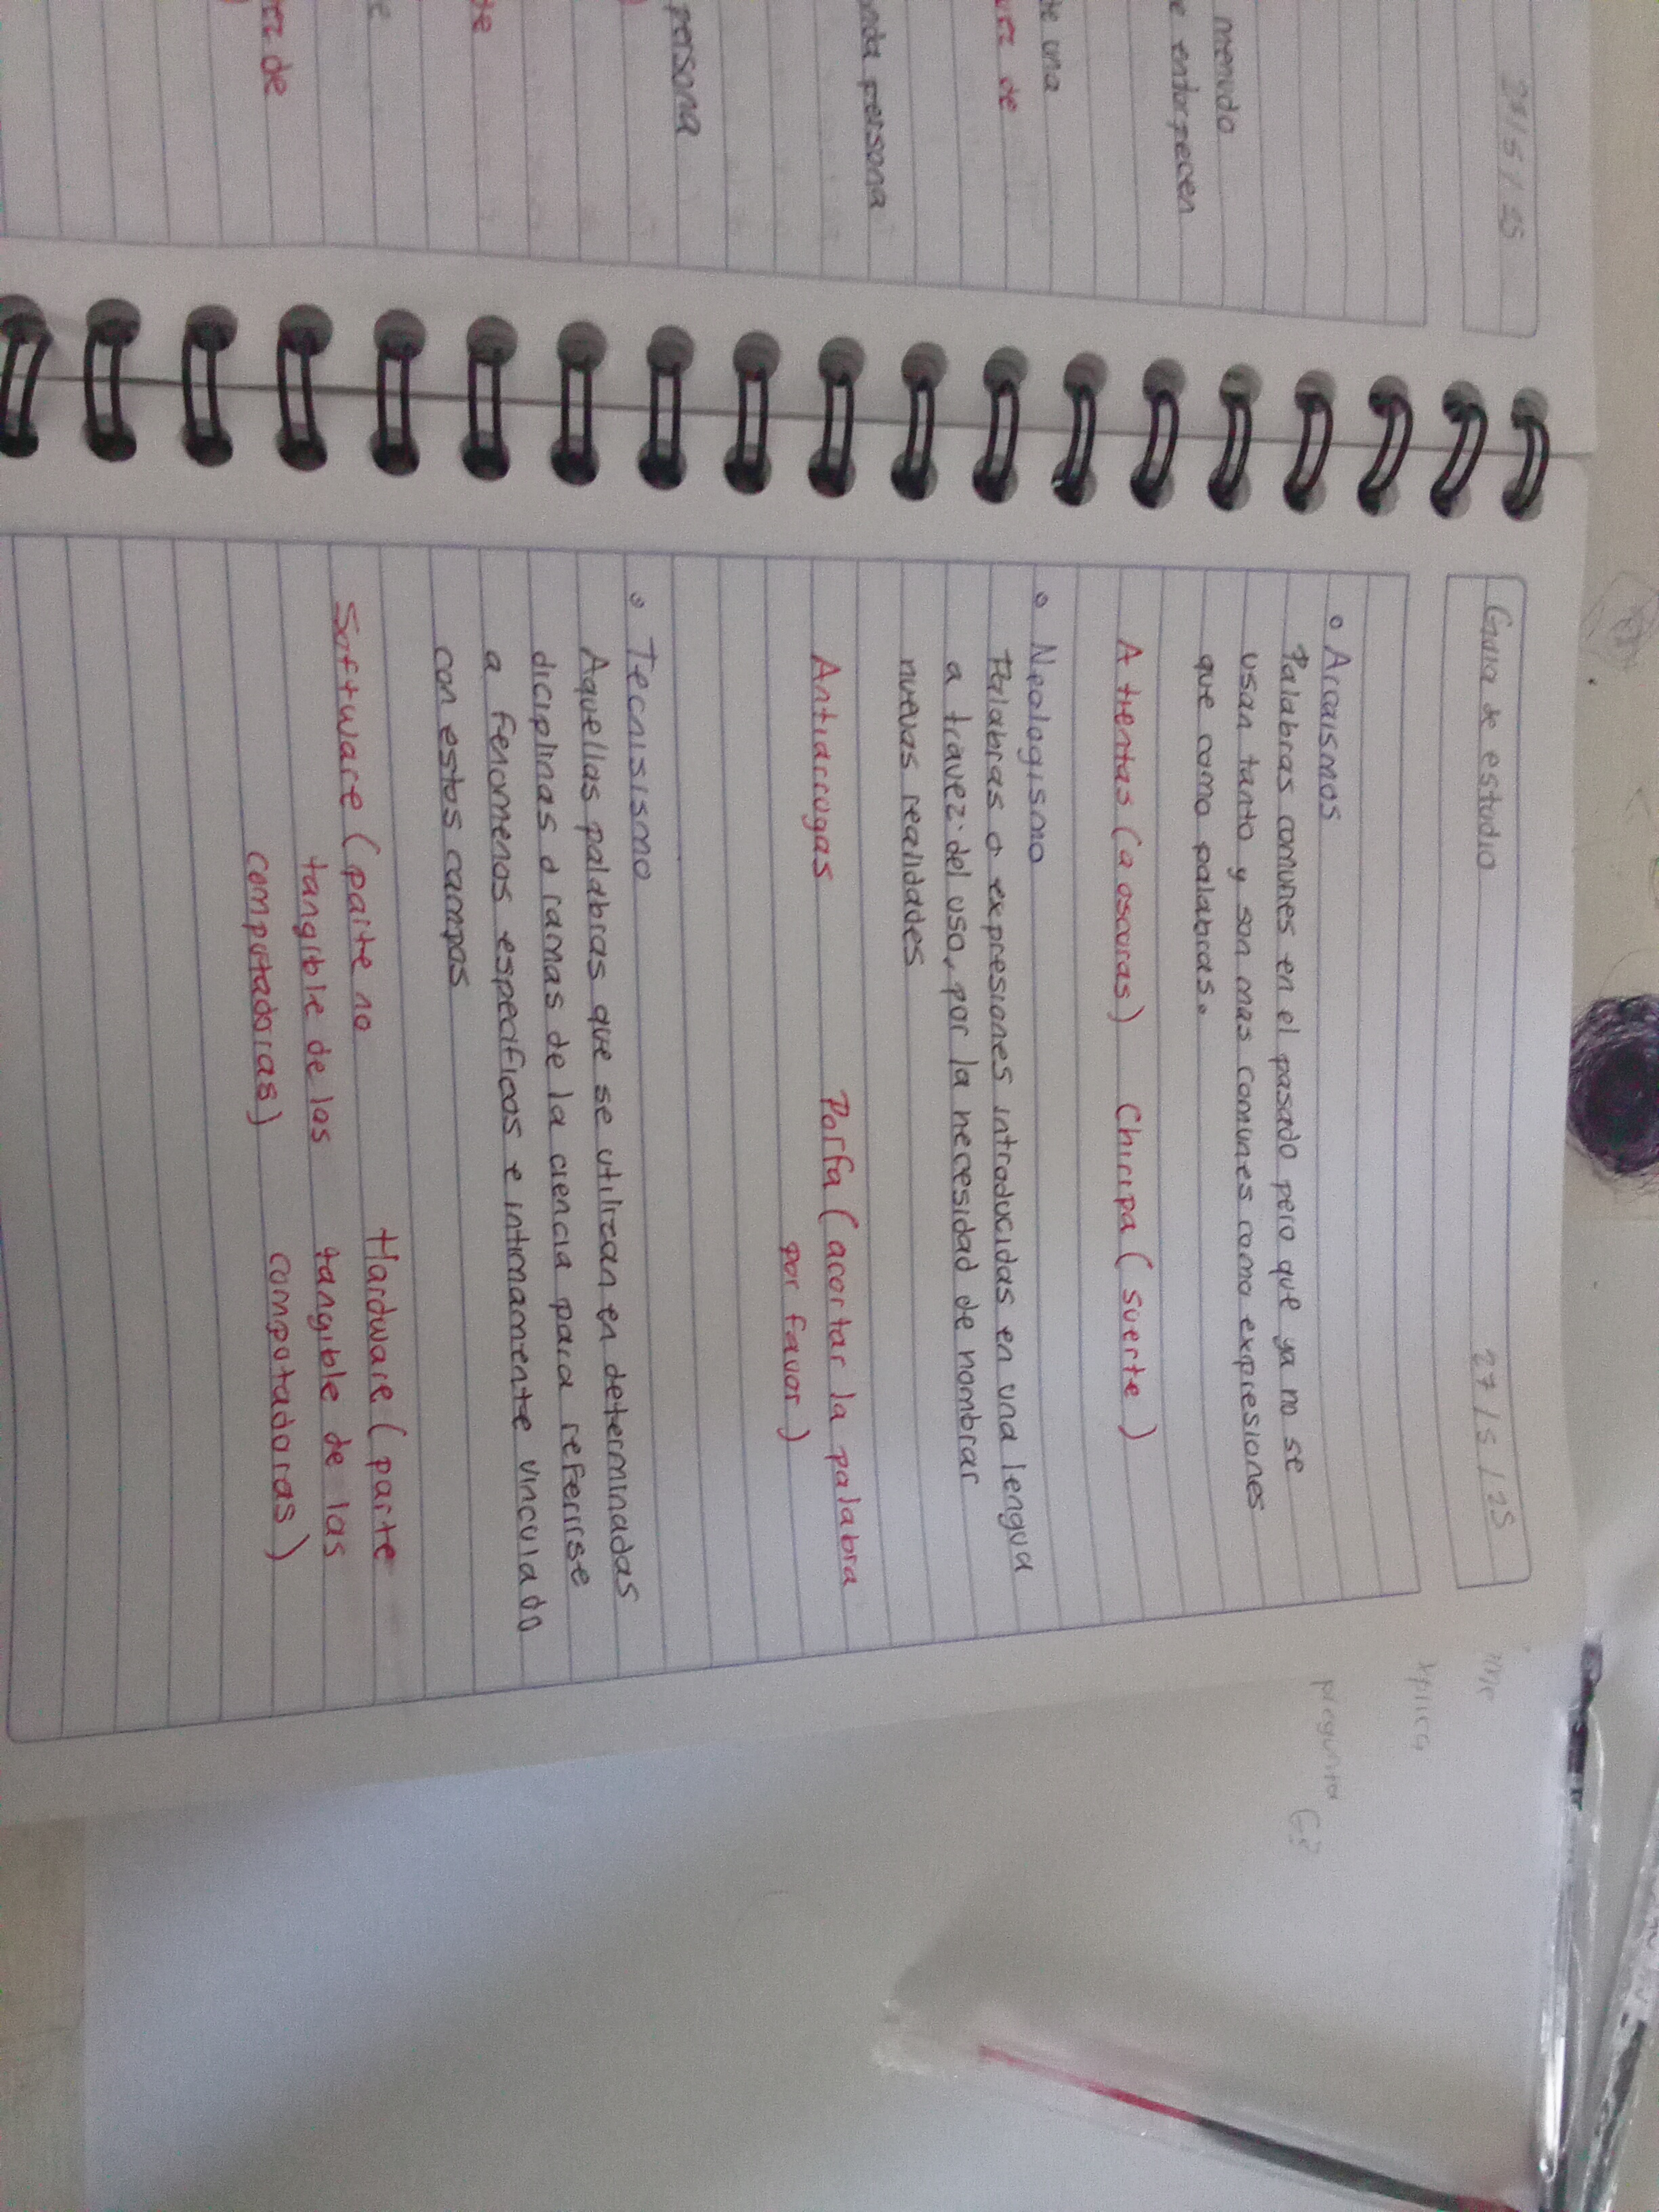 menudo
e entorpecen
te una
vez de
unda persona
persona
te
e
ez de
27/5/25
Guia de estudio 27/5/25
Arcaismos
Palabras comunes en el pasado pero que ya no se
usan tanto y son mas comunes como expresiones
que como palabras.
A tientas (a oscuras) Chiripa (suerte)
Neologismo
Palabras o expresiones introducidas en una lengua
a travez del uso, por la necesidad de nombrar
nuevas realidades
Antiarrugas Porfa (acortar la palabra
por favor)
Tecnisismo
Aquellas palabras que se utilizan en determinadas
diciplinas o ramas de la ciencia para referirse
a fenomenos especificos e intimamente vinculado
con estos campos
Software (parte no Hardware (parte
tangible de las tangible de las
computadoras) computadoras)
xplica
pregunta